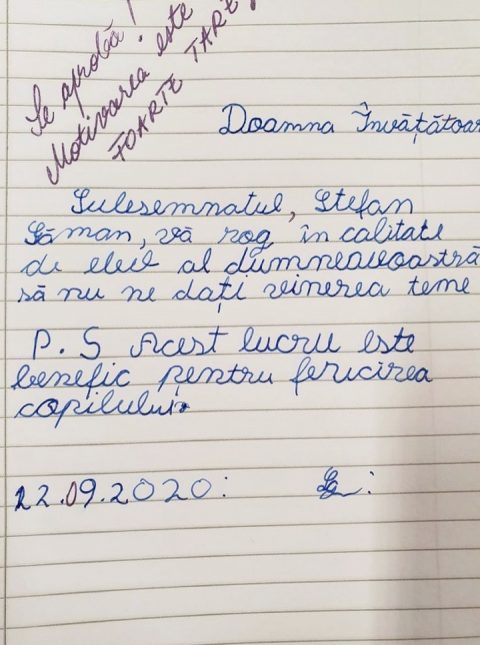 Se aprobă!
Motivarea este
FOARTE TARE
Doamna Învățătoar
Sulesemnatul, Ștefan
Găman, vă rog în calitate
de elev al dumneavoastră
să nu ne dați vinerea teme
P.S Acest lucru este
benefic pentru fericirea
copilului.
22.09.2020: